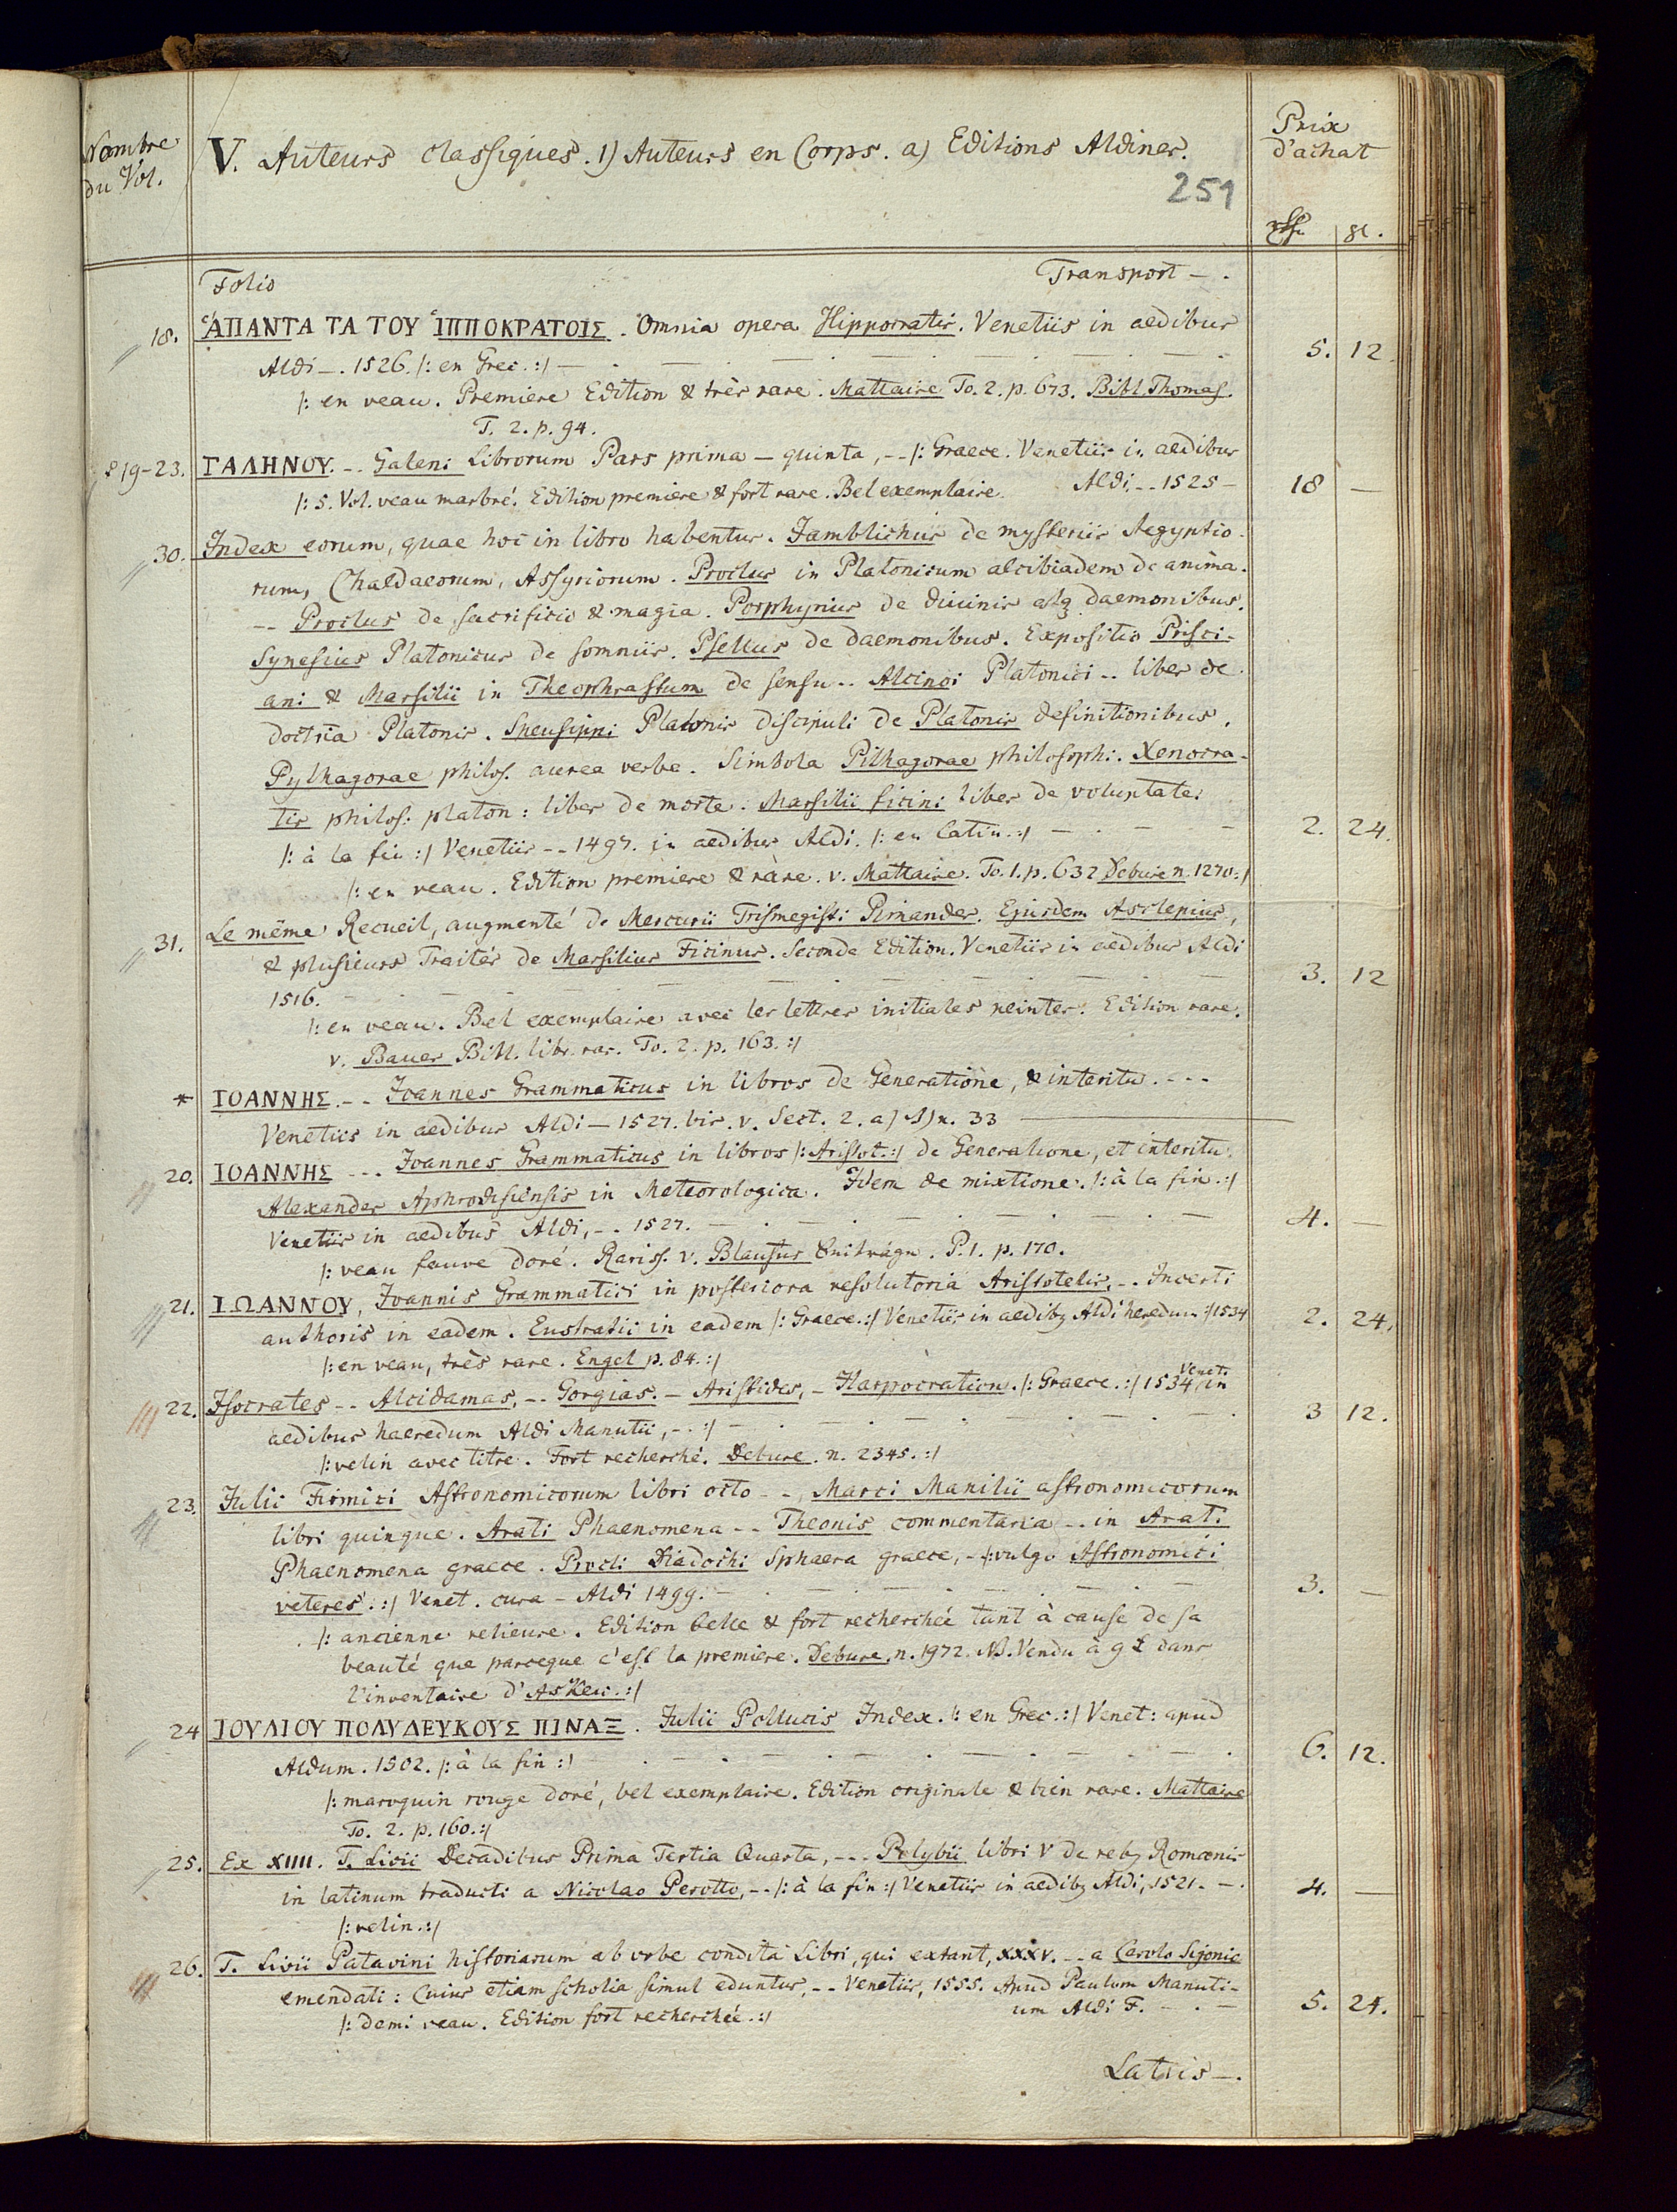 Nombre
du Vol.
V. Auteurs classiques. 1) Auteurs en Corps. a) Editions Aldines.
251
Prix
d'achat
Folio Transport - .
18. ἉΠΑΝΤΑ ΤΑ ΤΟΥ ἹΠΠΟΚΡΑΤΟΙΣ. Omnia opera Hippocratis. Venetiis in aedibus
Aldi -. 1526. /: en Grec. :/ 5. 12.
/: en veau. Premiere Edition & très rare. Mattaire To. 2. p. 673. Bibl. Thomas.
T. 2. p. 94.
19-23. ΓΑΛΗΝΟΥ. -- Galeni Librorum Pars prima - quinta, -- /: Graece. Venetiis in aedibus
/: 5. Vol. veau marbré. Edition premiere & fort rare. Bel exemplaire. Aldi, -- 1525 - 18 —
30. Index eorum, quae hoc in libro habentur. Jamblichus de mysteriis Aegyptio-
rum, Chaldaeorum, Assyriorum. Proclus in Platonicum alcibiadem de anima.
-- Proclus de sacrificio & magia. Porphyrius de divinis atq daemonibus.
Synesius Platonicus de somniis. Psellus de daemonibus. Expositio Prisci-
ani & Marsilii in Theophrastum de sensu -- Alcinoi Platonici -- liber de
doctria Platonis. Speusippi Platonis discipuli de Platonis definitionibus.
Pythagorae philos. aurea verba. Simbola Pithagorae philosophi. Xenocra-
tis philos: platon: liber de morte. Marsilii ficini liber de voluptate.
/: à la fin :/ Venetiis -- 1497. in aedibus Aldi. /: en latin. :/ 2. 24.
/: en veau. Edition premiere & rare. v. Mattaire. To. 1. p. 632 Debure n. 1270 :/
31. Le même Recueil, augmenté de Mercurii Trismegisti Pimander. Ejusdem Asclepius,
& plusieurs Traités de Marsilius Ficinus. Seconde Edition. Venetiis in aedibus Aldi
1516. 3. 12
/: en veau. Bel exemplaire avec les lettres initiales peintes. Edition rare.
v. Bauer Bibl. libr. rar. To. 2. p. 163. :/
* ΙΟΑΝΝΗΣ. -- Joannes Grammaticus in libros de Generatione, & interitu. ---
Venetiis in aedibus Aldi - 1527. bis. v. Sect. 2. a) n. 33
20. ΙΟΑΝΝΗΣ --- Joannes Grammaticus in libros /: Aristot. :/ de Generatione, et interitu.
Alexander Aphrodisiensis in Meteorologica. Idem de mixtione. /: à la fin. :/
Venetiis in aedibus Aldi, -. 1527. 4. —
/: veau fauve doré. Rariss. v. Blaufus P. 1. p. 170.
21. ΙΩΑΝΝΟΥ, Joannis Grammatici in posteriora resolutoria Aristotelis, -. Incerti
authoris in eadem. Eustratii in eadem /: Graece. :/ Venetiis in aedibq Aldi heredum :/ 1534 2. 24.
/: en veau, très rare. Engel p. 84. :/
22. Isocrates -- Alcidamas, -- Gorgias. - Aristides, - Harpocration. /: Graece. :/ 1534 Venet. in
aedibus haeredum Aldi Manutii, -. :/ 3 12.
/: velin avec titre. Fort recherché. Debure. n. 2345. :/
23. Julii Firmici Astronomicorum libri octo - -, Marci Manilii astronomicorum
libri quinque. Arati Phaenomena -- Theonis commentaria -. in Arati
Phaenomena graece. Procli Diadochi Sphaera graece, - /: vulgo Astronomici
veteres. :/ Venet. cura - Aldi 1499. 3. —
/: ancienne relieure. Edition belle & fort recherchée tant à cause de sa
beauté que parceque c'est la premiere. Debure. n. 1972. NB. Vendu à 9 £ dans
l'inventaire d'Askew. :/
24 ΙΟΥΛΙΟΥ ΠΟΛΥΔΕΥΚΟΥΣ ΠΙΝΑΞ. Julii Pollucis Index. /: en Grec. :/ Venet: apud
Aldum. 1502. /: à la fin :/ 6. 12.
/: maroquin rouge doré, bel exemplaire. Edition originale & bien rare. Mattaire
To. 2. p. 160. :/
25. Ex XIIII. T. Livii Decadibus Prima Tertia Quarta, --- Polybii libri V de rebq Romanis
in latinum traducti a Nicolao Perotto, -- /: à la fin :/ Venetiis in aedibq Aldi, 1521. -. 4. —
/: velin. :/
26. T. Livii Patavini historiarum ab urbe condita Libri, qui extant, XXXV. -- a Carolo Sigonio
emendati: Cuius etiam scholia simul eduntur, -- Venetiis, 1555. Apud Paulum Manuti-
/: demi veau. Edition fort recherchée. :/ um Aldi F. - . - 5. 24.
Latris -.